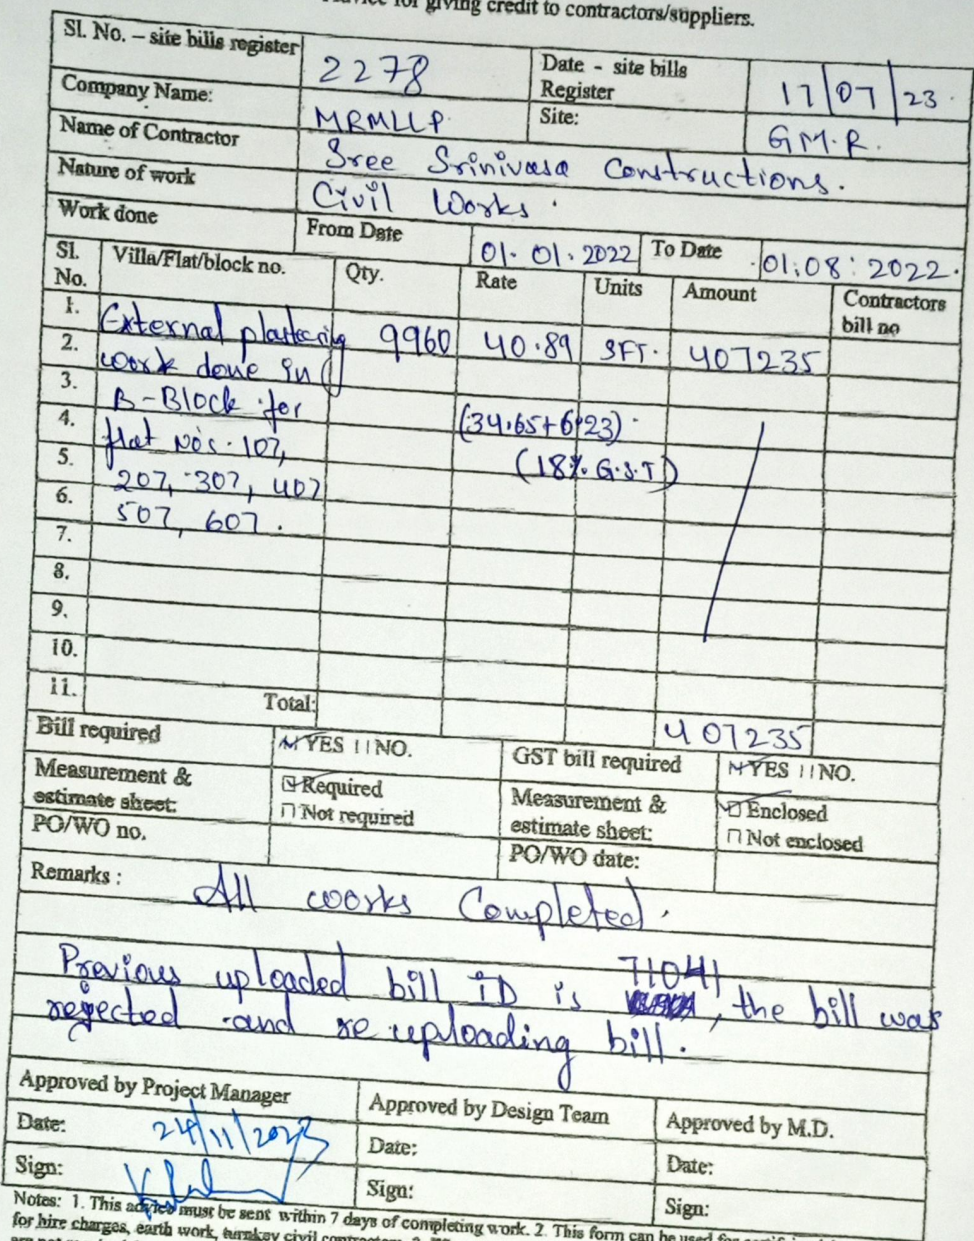 for giving credit to contractors/suppliers.
Sl. No. – site bills register 2278 Date - site bills Register 17/07/23
Company Name: MRMLLP. Site: G.M.R.
Name of Contractor Sree Srinivasa Constructions.
Nature of work Civil Works.
Work done From Date 01.01.2022 To Date 01.08.2022.
Sl. No. Villa/Flat/block no. Qty. Rate Units Amount Contractors bill no
1. External plastering 9960 40.89 SFT. 407235
2. work done in
3. B-Block for (34.65+6.23)
4. flat No's. 107, (18% G.S.T)
5. 207, 307, 407
6. 507, 607.
7.
8.
9.
10.
11. Total: 407235
Bill required YES NO. GST bill required YES NO.
Measurement & estimate sheet: Required Measurement & estimate sheet: Enclosed
Not required Not enclosed
PO/WO no. PO/WO date:
Remarks : All works Completed.
Previous uploaded bill ID is 71041, the bill was
rejected and re uploading bill.
Approved by Project Manager Approved by Design Team Approved by M.D.
Date: 24/11/2023 Date: Date:
Sign: Sign: Sign:
Notes: 1. This advice must be sent within 7 days of completing work. 2. This form can be used for
for hire charges, earth work, turnkey civil